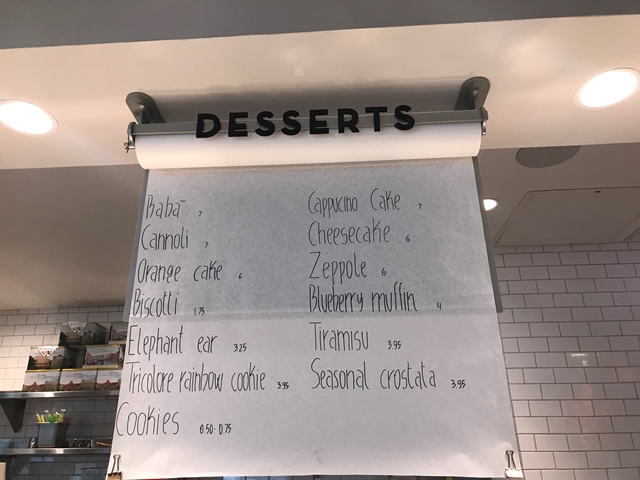 DESSERTS
Babà 7
Cannoli 7
Orange cake 6
Biscotti 1.75
Elephant ear 3.25
Tricolore rainbow cookie 3.95
Cookies 0.50-0.75
Cappucino Cake 7
Cheesecake 6
Zeppole 6
Blueberry muffin 4
Tiramisu 3.95
Seasonal crostata 3.95